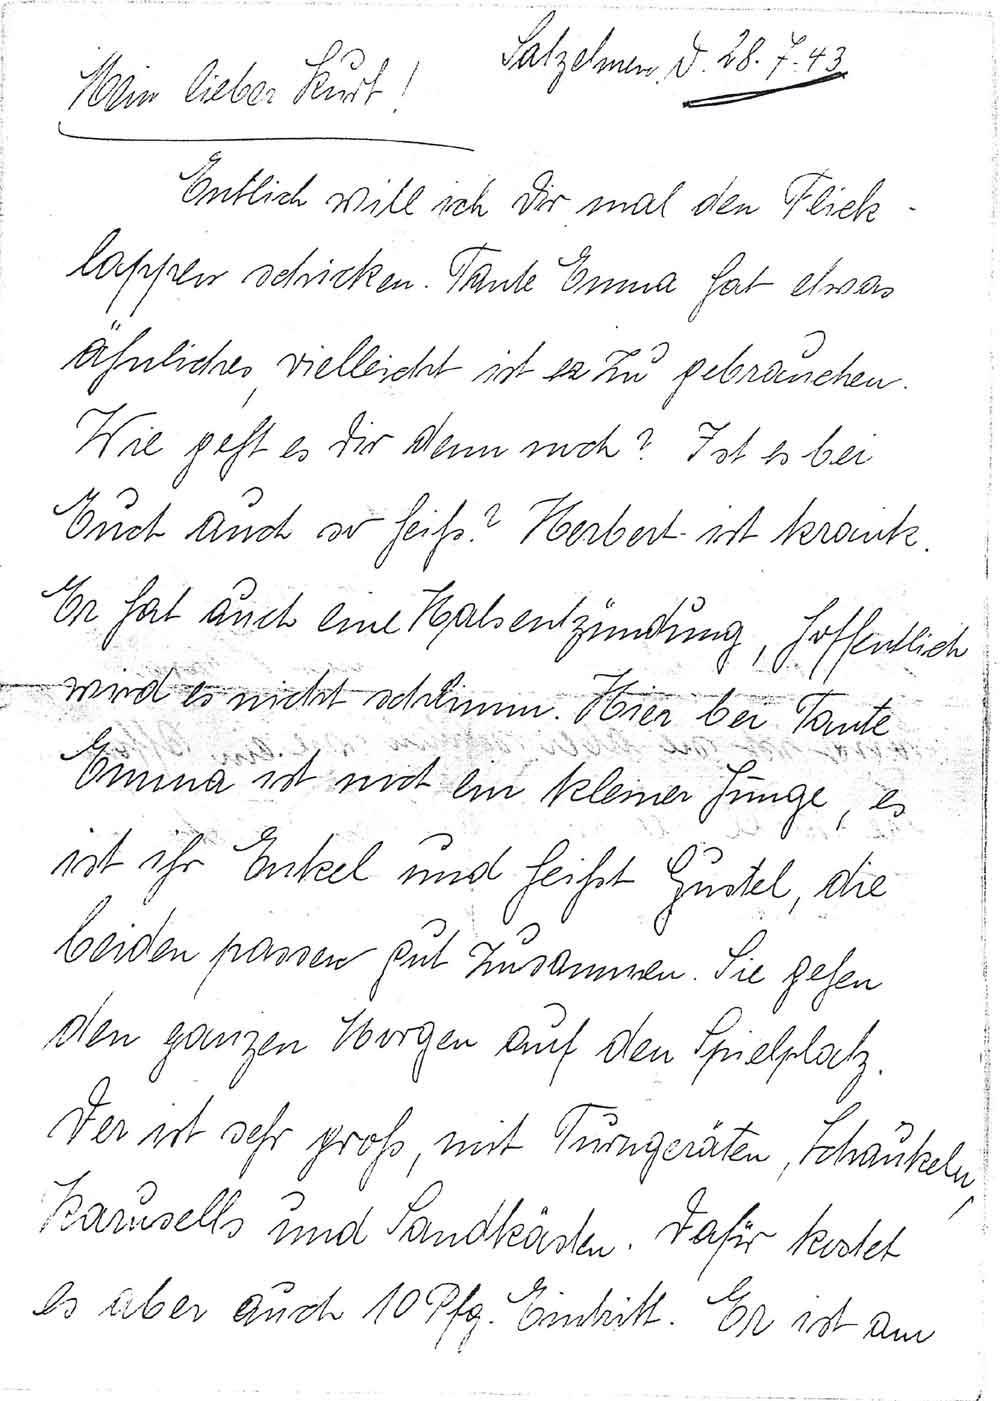 Salzelmen, d. 28.7.43
Mein lieber Kurt!
Entlich will ich Dir mal den Flick-
lappen schicken. Tante Emma hat etwas
ähnliches, vielleicht ist es zu gebrauchen.
Wie geht es Dir denn noch? Ist es bei
Euch auch so heiß? Herbert ist krank.
Er hat auch eine Halsentzündung, hoffentlich
wird es nicht schlimm. Hier bei Tante
Emma ist noch ein kleiner Junge, es
ist ihr Enkel und heißt Gustel, die
beiden passen gut zusammen. Sie gehen
den ganzen Morgen auf den Spielplatz.
Der ist sehr groß, mit Turngeräten, Schaukeln,
Karusells und Sandkästen. Dafür kostet
es aber auch 10 Pfg. Eintritt. Er ist am